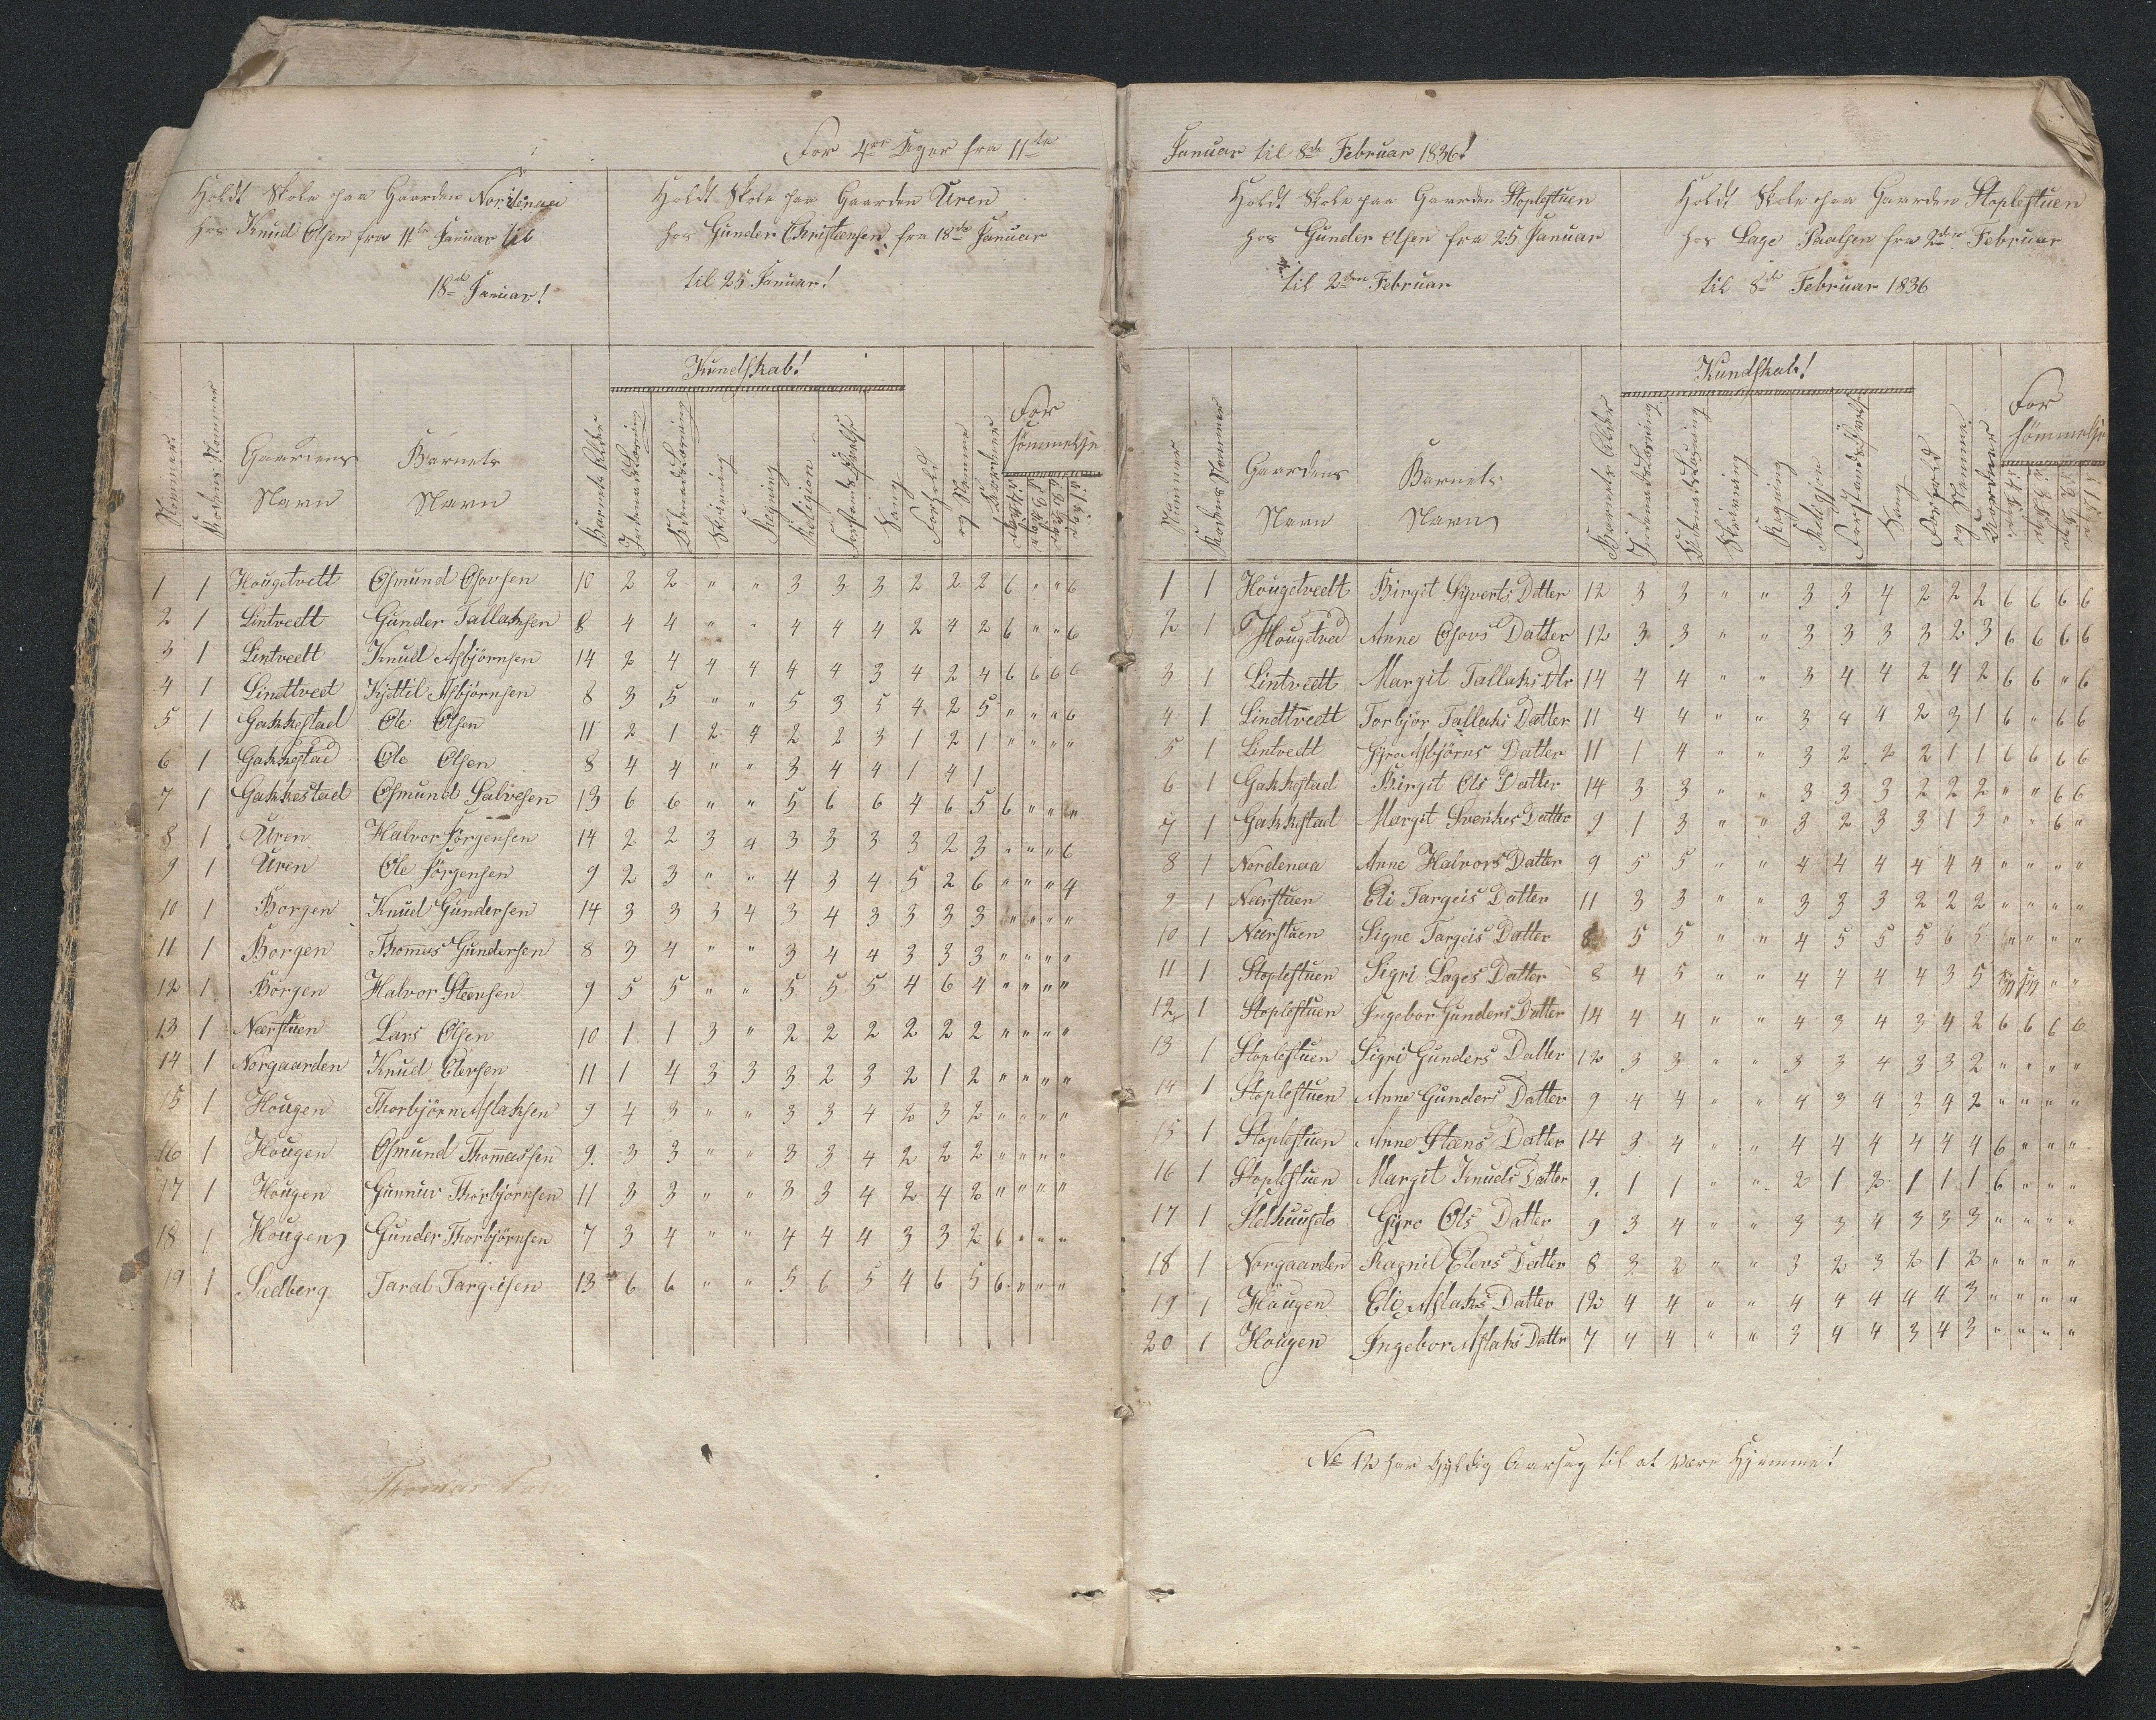 For 4re Uger fra 11te
Holdt Skole paa Gaarden Nordenaa
hos Knud Olsen fra 11te Januar til
18de Januar!
Holdt Skole paa Gaarden Uren
hos Gunder Christensen fra 18de Januar
til 25 Januar!
Kundskab!
Nommer Rodens Nommer Gaardens Navn Barnets Navn Barnets Alder Indenadslæsning Udenadslæsning Skrivning Regning Religion Forstands Øvelse Sang Forhold og Nemme Karakter Forsömmelse
1 1 Hougetvett Osmund Osovsen 10 2 2 " " 3 3 3 2 2 2 6 " " 6
2 1 Lintvedt Gunder Tallaksen 8 4 4 " " 4 4 4 2 4 2 6 " " 6
3 1 Lintvedt Knud Asbjörnsen 14 2 4 4 4 4 4 3 4 2 4 6 6 6 6
4 1 Lindttveet Kjettil Asbjörnsen 8 3 5 " " 5 3 5 4 2 5 " " " 6
5 1 Gakkestad Ole Olsen 11 2 1 2 4 2 2 3 1 2 1 " " " "
6 1 Gakkestad Ole Olsen 8 4 4 " " 3 4 4 1 4 1
7 1 Gakkestad Osmund Salvesen 13 6 6 " " 5 6 6 4 6 5 6 " " "
8 1 Uren Halvor Jörgensen 14 2 2 3 4 3 3 3 3 2 3 " " " 6
9 1 Uren Ole Jörgensen 9 2 3 " " 4 3 4 5 2 6 " " " 4
10 1 Borgen Knud Gundersen 14 3 3 3 4 3 4 3 3 3 3 " " " "
11 1 Borgen Thommes Gundersen 8 3 4 " " 3 4 4 3 3 3 " " " "
12 1 Borgen Halvor Steensen 9 5 5 " " 5 5 5 4 6 4 " " " "
13 1 Neerstuen Lars Olsen 10 1 1 3 " 2 2 2 2 2 2 " " " "
14 1 Norgaarden Knud Elevsen 11 1 4 3 3 3 2 3 2 1 2 " " " "
15 1 Hougen Thorbjörn Aslaksen 9 4 3 " " 3 3 4 2 3 2 " " " "
16 1 Hougen Osmund Thommassen 9. 3 3 " " 3 3 4 2 2 2 " " " "
17 1 Hougen Gunnuv Thorbjörnsen 11 3 3 " " 3 3 4 2 4 2 " " " "
18 1 Hougen Gunder Thorbjörnsen 7 3 4 " " 4 4 4 3 3 2 6 " " "
19 1 Sadberg Taral Targeisen 13 6 6 " " 5 6 5 4 6 5 6 " " "
Thomas
Januar til 8de Februar 1836!
Holdt Skole paa Gaarden Stoplestuen
hos Gunder Olsen fra 25 Januar
til 2den Februar
Holdt Skole paa Gaarden Stoplestuen
hos Lage Paalsen fra 2den Februar
til 8de Februar 1836
Kundskab!
Nummer Rodens Nommer Gaardens Navn Barnets Navn Barnets Alder Indenadslæsning Udenadslæsning Skrivning Regning Religion Forstands Øvelse Sang Forhold og Nemme Karakter Forsömmelse
1 1 Hougetveelt Birgit Syverts Datter 12 3 3 " " 3 3 4 2 2 2 6 6 6 6
2 1 Hougetved Anne Osovs Datter 12 3 3 " " 3 3 3 3 2 3 6 6 6 6
3 1 Lintvedt Margit Tallaks Dtr 14 4 4 " " 3 4 4 2 4 2 6 6 " 6
4 1 Lindttvedt Torbjör Tallaks Datter 11 4 4 " " 3 4 4 2 3 1 6 " 6 6
5 1 Lintvedt Gyro Asbjörns Datter 11 1 4 " " 3 2 2 2 1 1 6 6 6 6
6 1 Gakkestad Birgit Ols Datter 14 3 3 " " 3 3 3 2 2 2 " " 6 6
7 1 Gakkestad Margit Svenkes Datter 9 1 3 " " 3 2 3 3 1 3 " " 6 "
8 1 Nordenaa Anne Halvors Datter 9 5 5 " " 4 4 4 4 4 4 " " " "
9 1 Neerstuen Eli Targeis Datter 11 3 3 " " 3 3 3 2 2 2 " " " "
10 1 Neerstuen Signe Targeis Datter 8 5 5 " " 4 5 5 5 6 5 " " " "
11 1 Stoplestuen Sigri Lages Datter 8 4 5 " " 4 4 4 4 3 5 syg syg " "
12 1 Stoplestuen Ingebor Gunders Datter 14 4 4 " " 4 3 4 3 4 2 6 6 6 6
13 1 Stoplestuen Sigri Gunders Datter 12 3 3 " " 3 3 4 3 3 2 " " " "
14 1 Stoplestuen Anne Gunders Datter 9 4 4 " " 4 3 4 3 4 2 " " " "
15 1 Stoplestuen Anne Steens Datter 14 3 4 " " 4 4 4 4 4 4 6 " " "
16 1 Stoplestuen Margit Knuds Datter 9. 1 1 " " 2 1 2 1 1 1 6 " " "
17 1 Gyro Ols Datter 9 3 4 " " 3 3 4 3 3 3 " " " "
18 1 Norgaarden Ragnil Elevs Datter 8 3 2 " " 3 2 3 2 1 2 " " " "
19 1 Hougen Eli Aslaks Datter 12 4 4 " " 4 4 4 4 4 3 " " " "
20 1 Hougen Ingebor Aslaks Dattr 7 4 4 " " 3 4 4 3 4 3 " " " "
No 12 har Gyldig Aarsag til at være Hjemme!